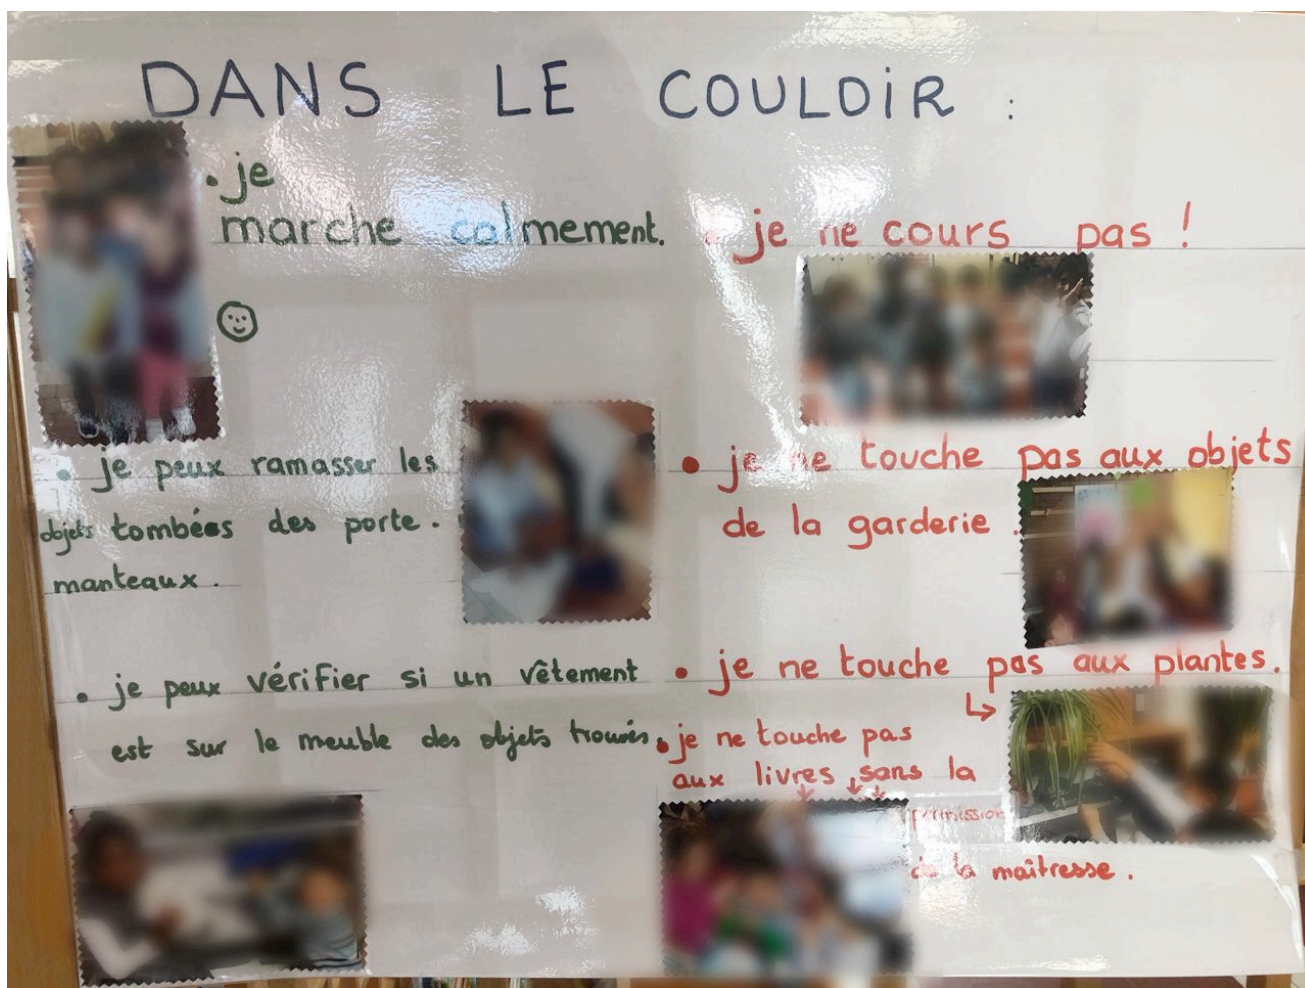 DANS LE COULOIR :
• je
marche calmement.
• je peux ramasser les
objets tombées des porte.
manteaux.
• je peux vérifier si un vêtement
est sur le meuble des objets trouvés.
• je ne cours pas !
• je ne touche pas aux objets
de la garderie.
• je ne touche pas aux plantes.
• je ne touche pas
aux livres sans la
permission
de la maîtresse.